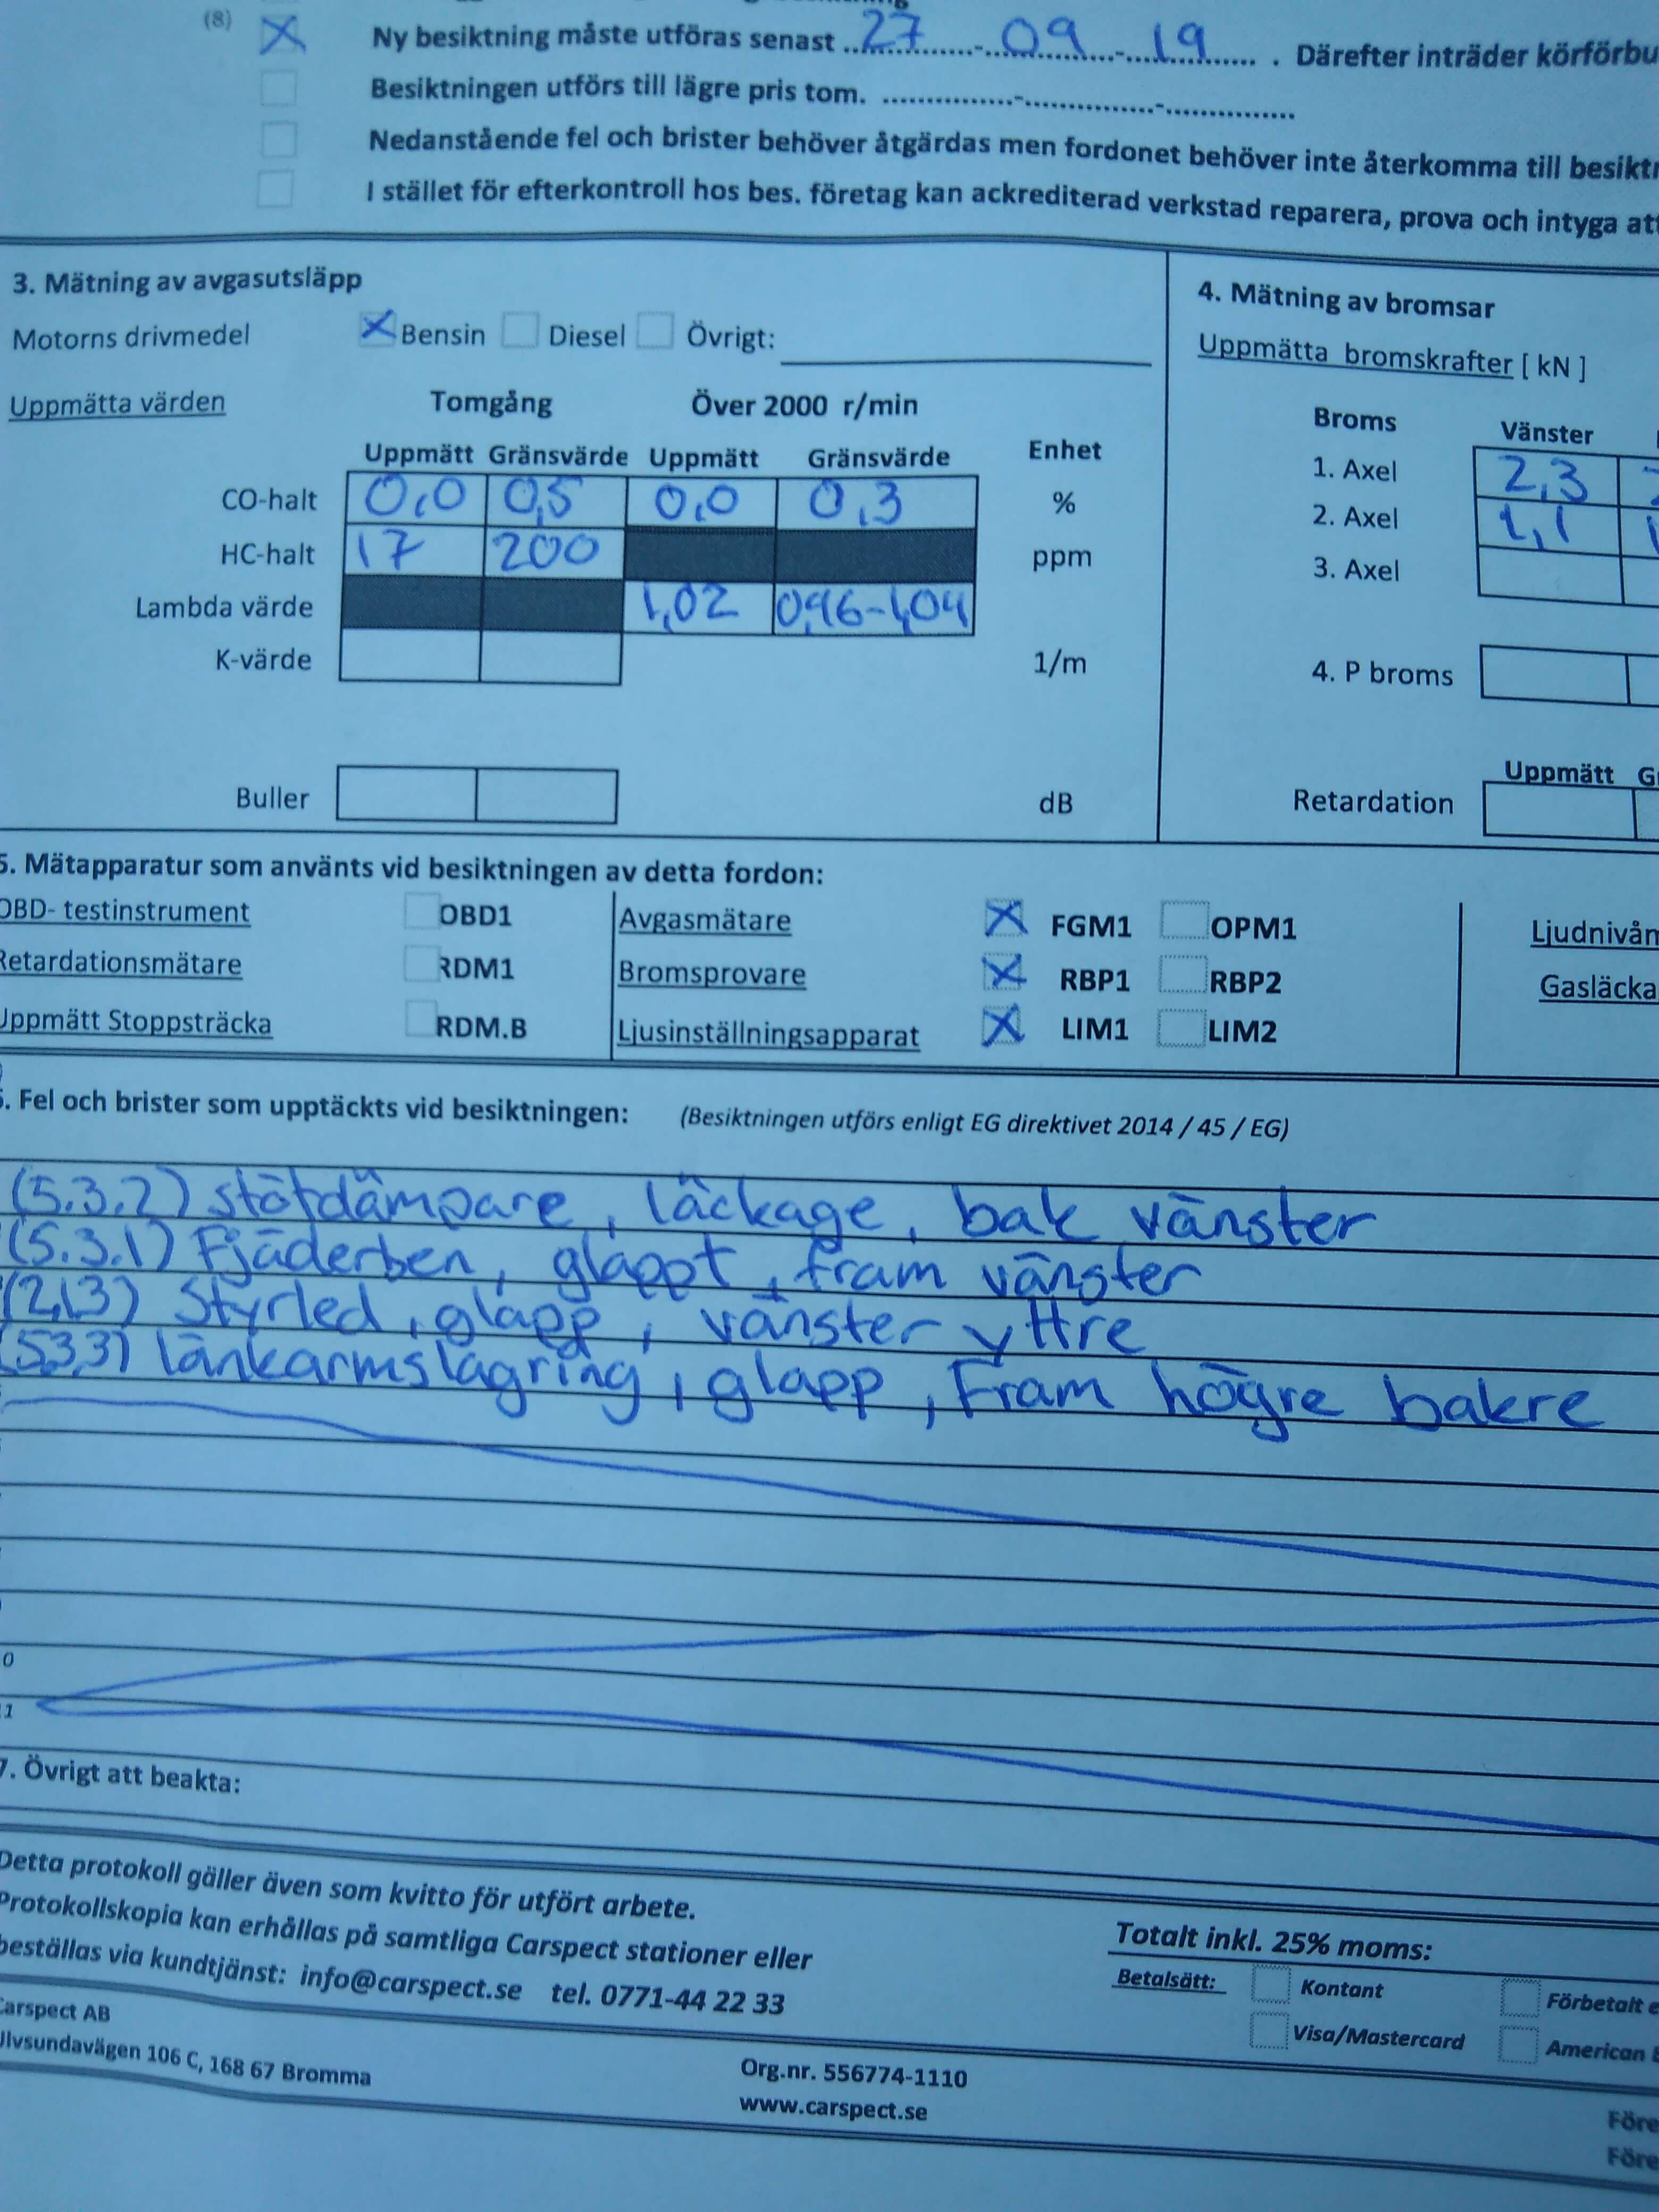 (8) X Ny besiktning måste utföras senast 27 - 09 - 19 . Därefter inträder körförbu
Besiktningen utförs till lägre pris tom. ..............-..............-..............
Nedanstående fel och brister behöver åtgärdas men fordonet behöver inte återkomma till besiktn
I stället för efterkontroll hos bes. företag kan ackrediterad verkstad reparera, prova och intyga att
3. Mätning av avgasutsläpp
Motorns drivmedel X Bensin Diesel Övrigt:
Uppmätta värden Tomgång Över 2000 r/min
Uppmätt Gränsvärde Uppmätt Gränsvärde Enhet
CO-halt 0,0 0,5 0,0 0,3 %
HC-halt 17 200 ppm
Lambda värde 1,02 0,96-1,04
K-värde 1/m
Buller dB
4. Mätning av bromsar
Uppmätta bromskrafter [ kN ]
Broms Vänster
1. Axel 2,3
2. Axel 1,1
3. Axel
4. P broms
Uppmätt
Retardation
5. Mätapparatur som använts vid besiktningen av detta fordon:
OBD- testinstrument OBD1 Avgasmätare X FGM1 OPM1 Ljudnivåm
Retardationsmätare RDM1 Bromsprovare X RBP1 RBP2 Gasläcka
Uppmätt Stoppsträcka RDM.B Ljusinställningsapparat X LIM1 LIM2
6. Fel och brister som upptäckts vid besiktningen: (Besiktningen utförs enligt EG direktivet 2014 / 45 / EG)
(5.3.2) stötdämpare, läckage, bak vänster
(5.3.1) Fjäderben, glappt, fram vänster
(2,1,3) Styrled, glapp, vänster yttre
(5,3,3) länkarmslagring, glapp, Fram högre bakre
0
1
7. Övrigt att beakta:
Detta protokoll gäller även som kvitto för utfört arbete.
Protokollskopia kan erhållas på samtliga Carspect stationer eller
beställas via kundtjänst: info@carspect.se tel. 0771-44 22 33
Totalt inkl. 25% moms:
Betalsätt: Kontant Förbetalt e
Visa/Mastercard American E
Carspect AB
Ulvsundavägen 106 C, 168 67 Bromma
Org.nr. 556774-1110
www.carspect.se
Före
Före